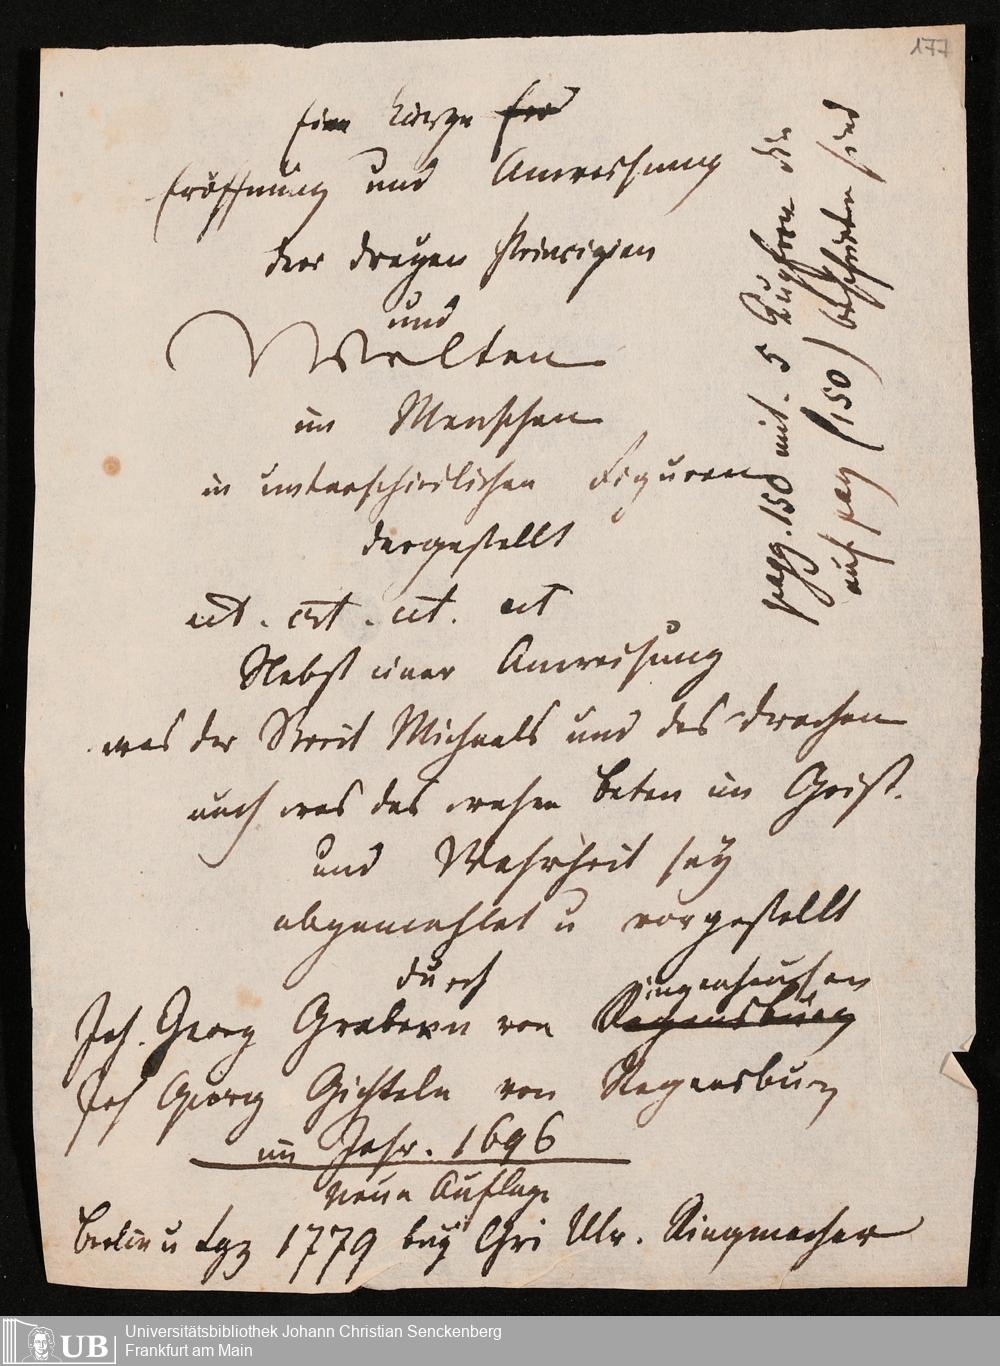 177
Eine kurze
Eröffnung und Anweisung
der dreyen Principien
und
Welten
im Menschen
in unterschiedlichen Figuren
dargestellt
etc. etc. etc. etc
Nebst einer Anweisung
was der Streit Michaels und des Drachen
auch was das wahre Beten im Geist
und Wahrheit sey
abgemahlet u vorgestellt
durch
Joh. Georg Grabern von Ringenhausen
Joh Georg Gichteln von Regensburg
im Jahr. 1696
Neue Auflage
Berlin u Lpz 1779 bey Chri Ulr. Ringmacher
pagg. 150 mit 5 Kupfern die
auf pag (150) beschrieben sind
UB
Universitätsbibliothek Johann Christian Senckenberg
Frankfurt am Main